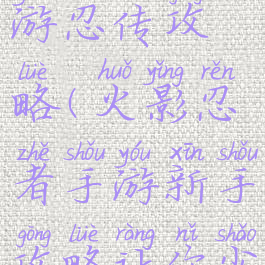 游忍传攻
lüè huǒ yǐng rěn
略(火影忍
zhě shǒu yóu xīn shǒu
者手游新手
gōng lüè ràng nǐ shǎo
攻略让你少